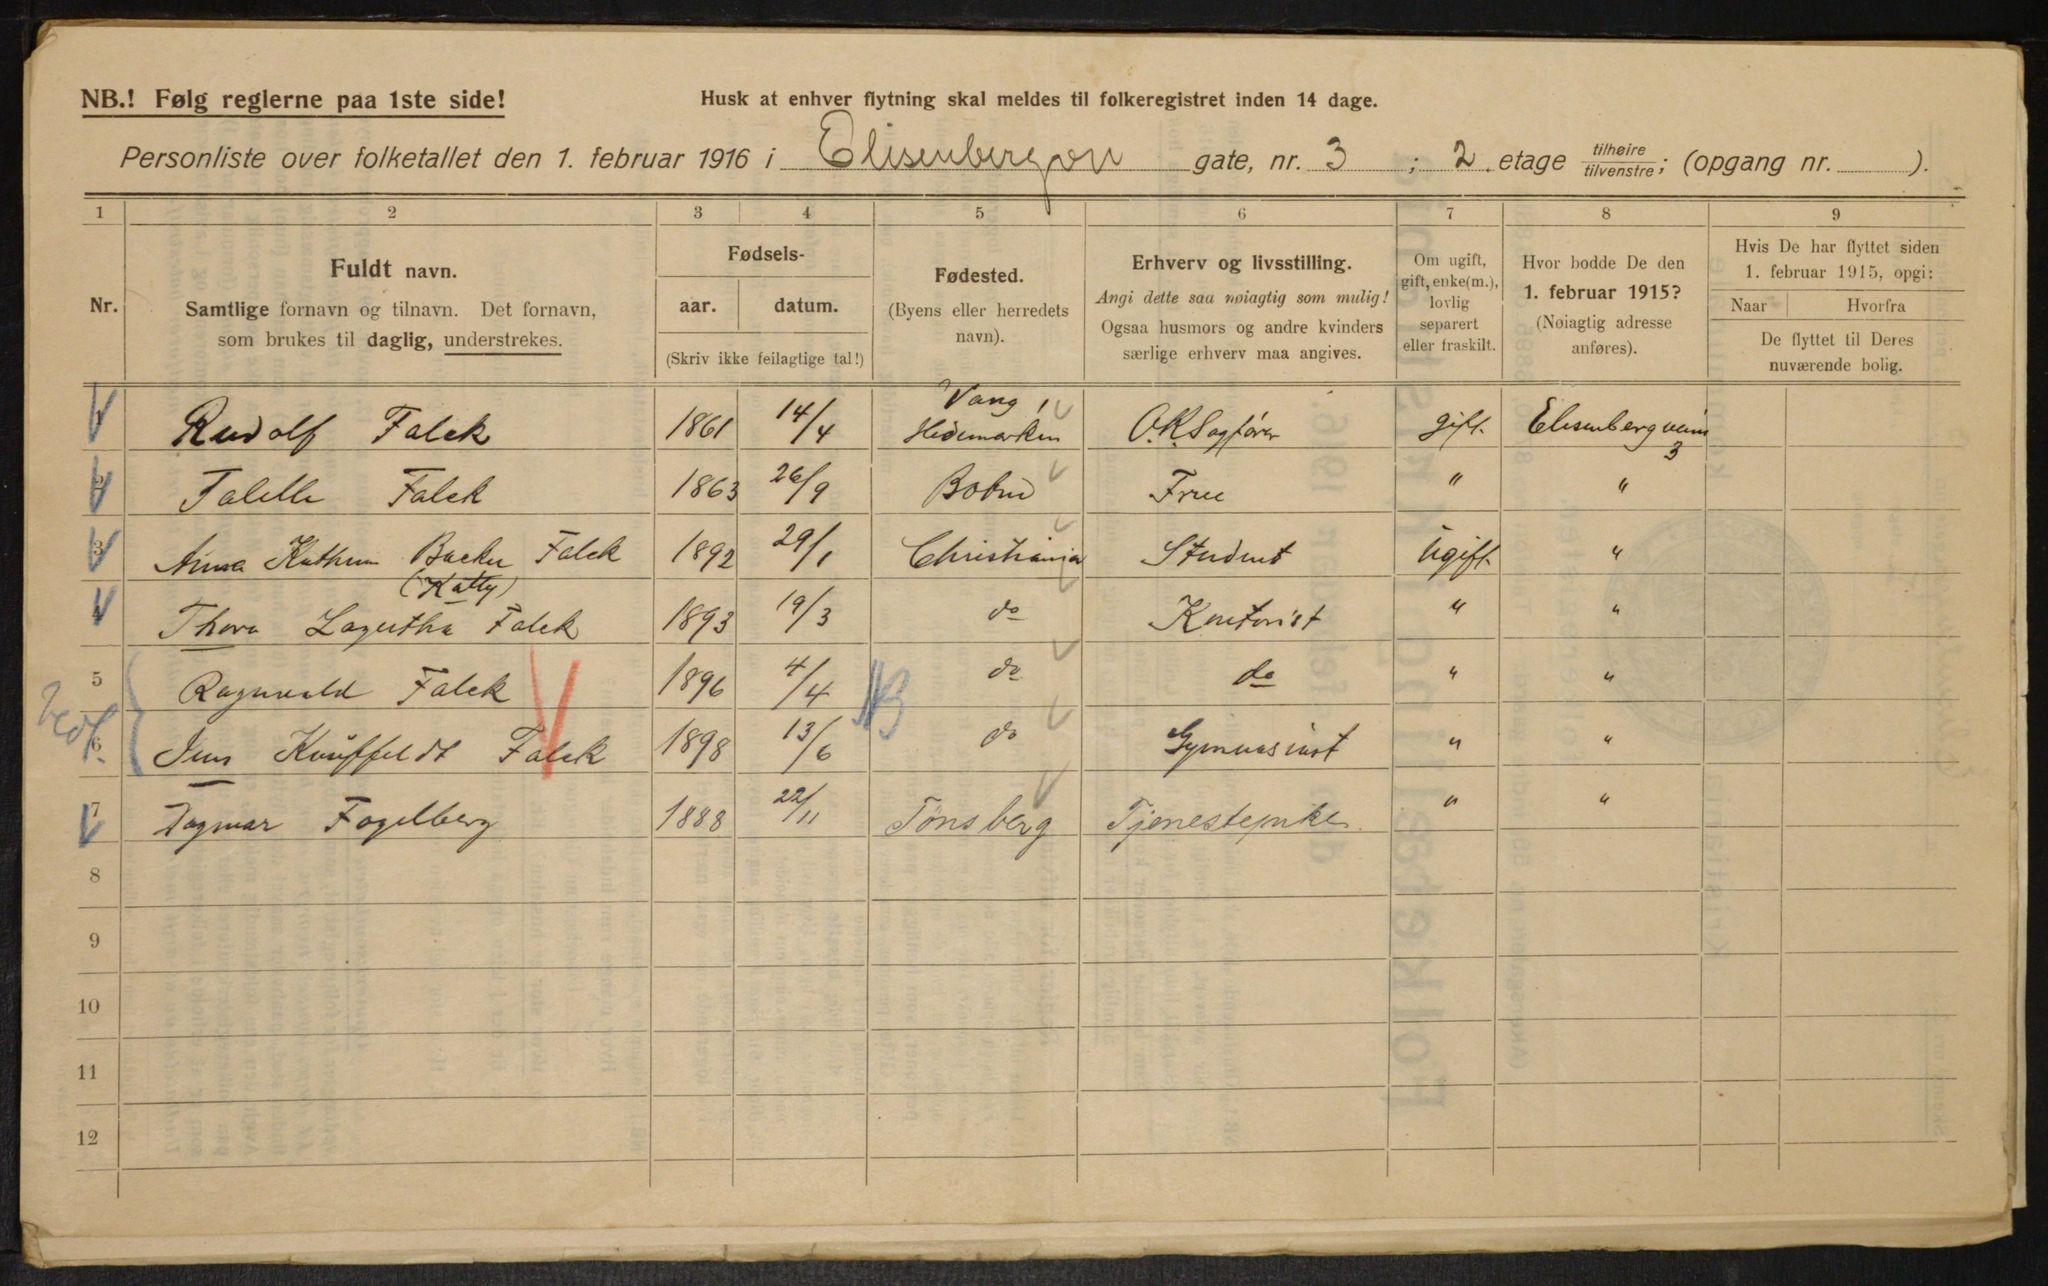 NB.! Følg reglerne paa 1ste side!
Husk at enhver flytning skal meldes til folkeregistret inden 14 dage.
Personliste over folketallet den 1. februar 1916 i Elisenbergvn gate, nr. 3 ; 2 etage tilhøire tilvenstre; (opgang nr. ).
1 2 3 4 5 6 7 8 9
Nr.
Fuldt navn.
Samtlige fornavn og tilnavn. Det fornavn,
som brukes til daglig, understrekes.
Fødsels-
aar. datum.
(Skriv ikke feilagtige tal!)
Fødested.
(Byens eller herredets
navn).
Erhverv og livsstilling.
Angi dette saa nøiagtig som mulig!
Ogsaa husmors og andre kvinders
særlige erhverv maa angives.
Om ugift,
gift, enke(m.),
lovlig
separert
eller fraskilt.
Hvor bodde De den
1. februar 1915?
(Nøiagtig adresse
anføres).
Hvis De har flyttet siden
1. februar 1915, opgi:
Naar Hvorfra
De flyttet til Deres
nuværende bolig.
Rudolf Falck 1861 14/4 Vang, Hedemarken O.R.Sagfører gift. Elisenbergveien 3
2 Falck 1863 26/9 Fru " "
3 Anna Kathrine Backer Falck 1892 29/1 Christiania Student Ugift "
(Katty)
Thora Lagertha Falck 1893 19/3 do Kontorist " "
5 Ragnvald Falck 1896 4/4 do do " "
6 Jens Falck 1898 13/6 do Gymnasiast " "
7 Dagmar Fogelberg 1888 22/11 Tønsberg Tjenestepike " "
8
9
10
11
12